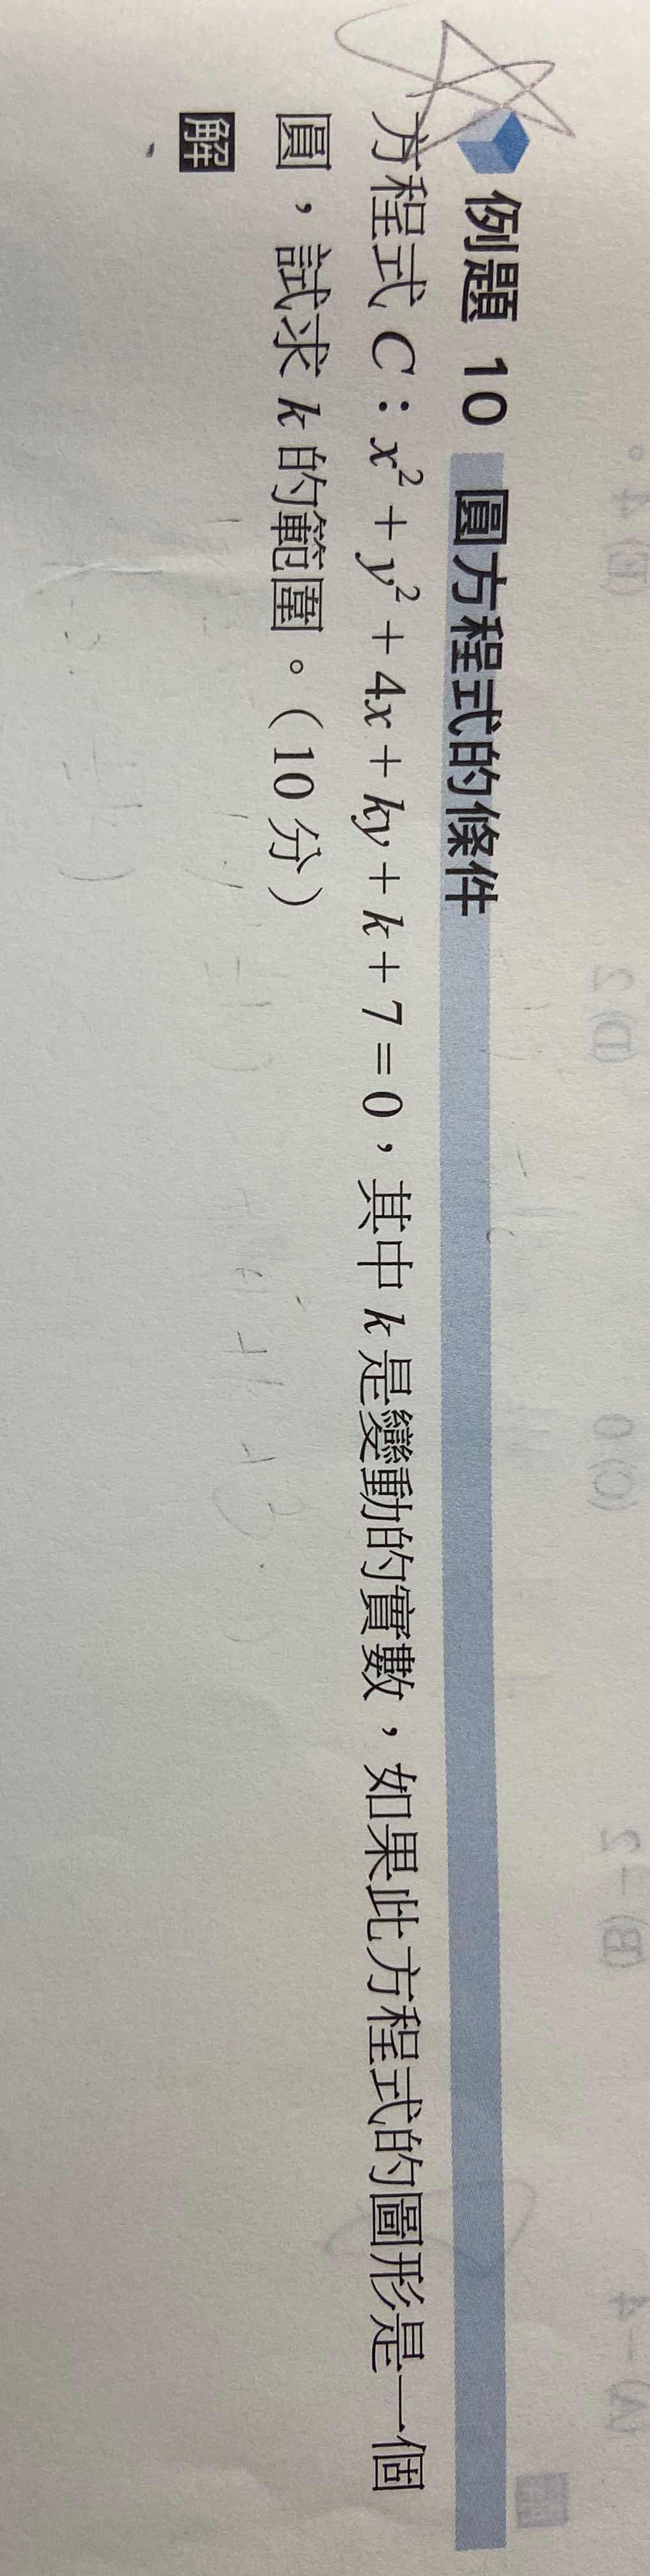 例題 10 圓方程式的條件
方程式 C：x² + y² + 4x + ky + k + 7 = 0，其中 k 是變動的實數，如果此方程式的圖形是一個
圓，試求 k 的範圍。（10 分）
解